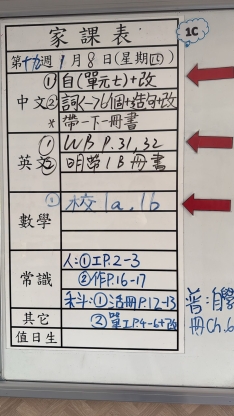 家課表
1C
第十九週 1月8日(星期四)
中文
① 自(單元七)+改
② 詞(一)→7(6個+造句+改
* 帶一下一冊書
英文
① WB P.31,32
② 明帶1B冊書
數學
① 校1a,1b
常識
人:①工P.2-3
②作P.16-17
科:①活冊P.12-13
其它
②單工P.4-6+改
值日生
普:自學
冊Ch.6